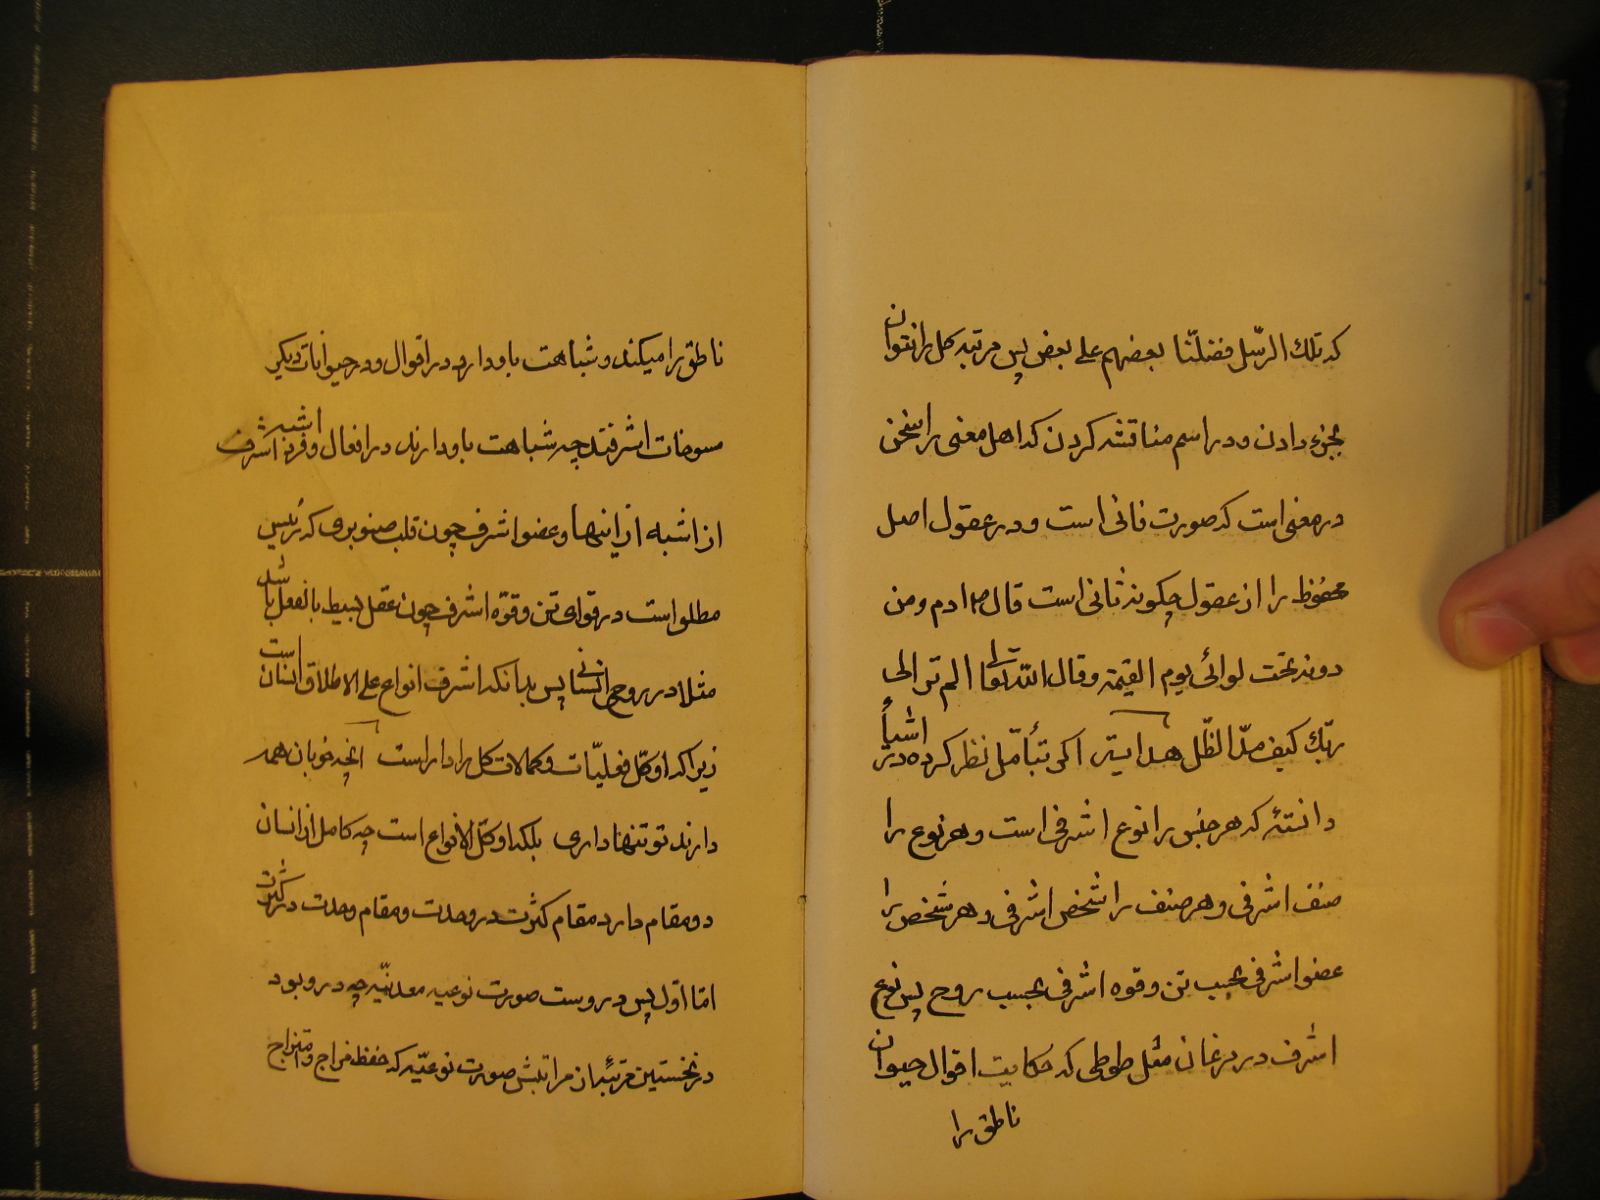 که تلک الرسل فضلنا بعضهم علی بعض پس مرتبه کل را نتوان
بجزء دادن و در اسم مناقشه کردن که اهل معنی را سخن
در معنی است که صورت فانی است و در عقول اصل
محفوظ را از عقول چگونه ثانی است قال ص ادم و من
دونه تحت لوائی یوم القیمة و قال الله تعالی الم تر الی
ربک کیف مدّ الظّل هدایة اگر بتأمّل نظر کرده در اشیأ
دانستهٔ که هر جنس را نوع اشرفی است و هر نوع را
صنف اشرفی و هر صنف را شخص اشرفی و هر شخص را
عضو اشرفی بحسب تن و قوه اشرفی بحسب روح پس نوع
اشرف در مرغان مثل طوطی که حکایت اقوال حیوان
ناطق را
ناطق را میکند و شباهت باو دارد در اقوال و در حیوانات دیگر
مسوخات اشرفند چه شباهت باو دارند در افعال و فرد اشرف اشبه
از اشبه از اینها و عضو اشرف چون قلب صنوبری که رئیس
مطلق است در قوای تن و قوّه اشرف چون عقل بسیط بالفعل باشد
مثلا در روح انسانی پس بدانکه اشرف انواع علی الاطلاق انسان است
زیرا که او کلّ فعلیّات و کمالات کل را داراست انچه خوبان همه
دارند تو تنها داری بلکه او کلّ الانواع است چه کامل از انسان
دو مقام دارد مقام کثرت در وحدت و مقام وحدت در کثرت
امّا اوّل پس در وست صورت نوعیه معدنیّه چه در و بود
در نخستین مرتبهٔ از مراتبش صورت نوعیّه که حفظ مزاج و امتزاج